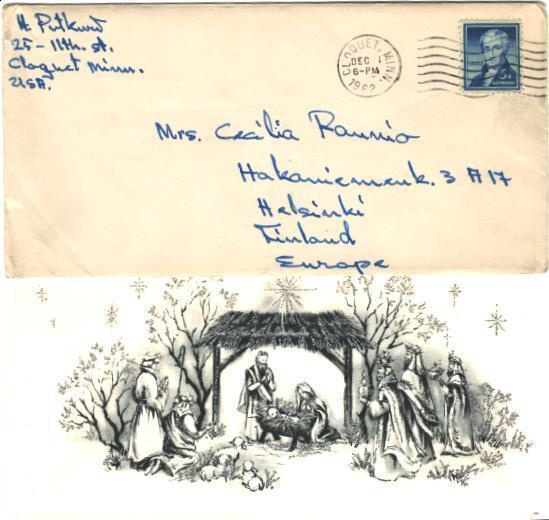 H. Putkuri
25 - 11th. st.
Cloquet Minn.
USA.
CLOQUET, MINN.
DEC 1
6-PM
1962
5¢
Mrs. Cecilia Raunio
Hakaniemenk. 3 A 17
Helsinki
Finland
Europe